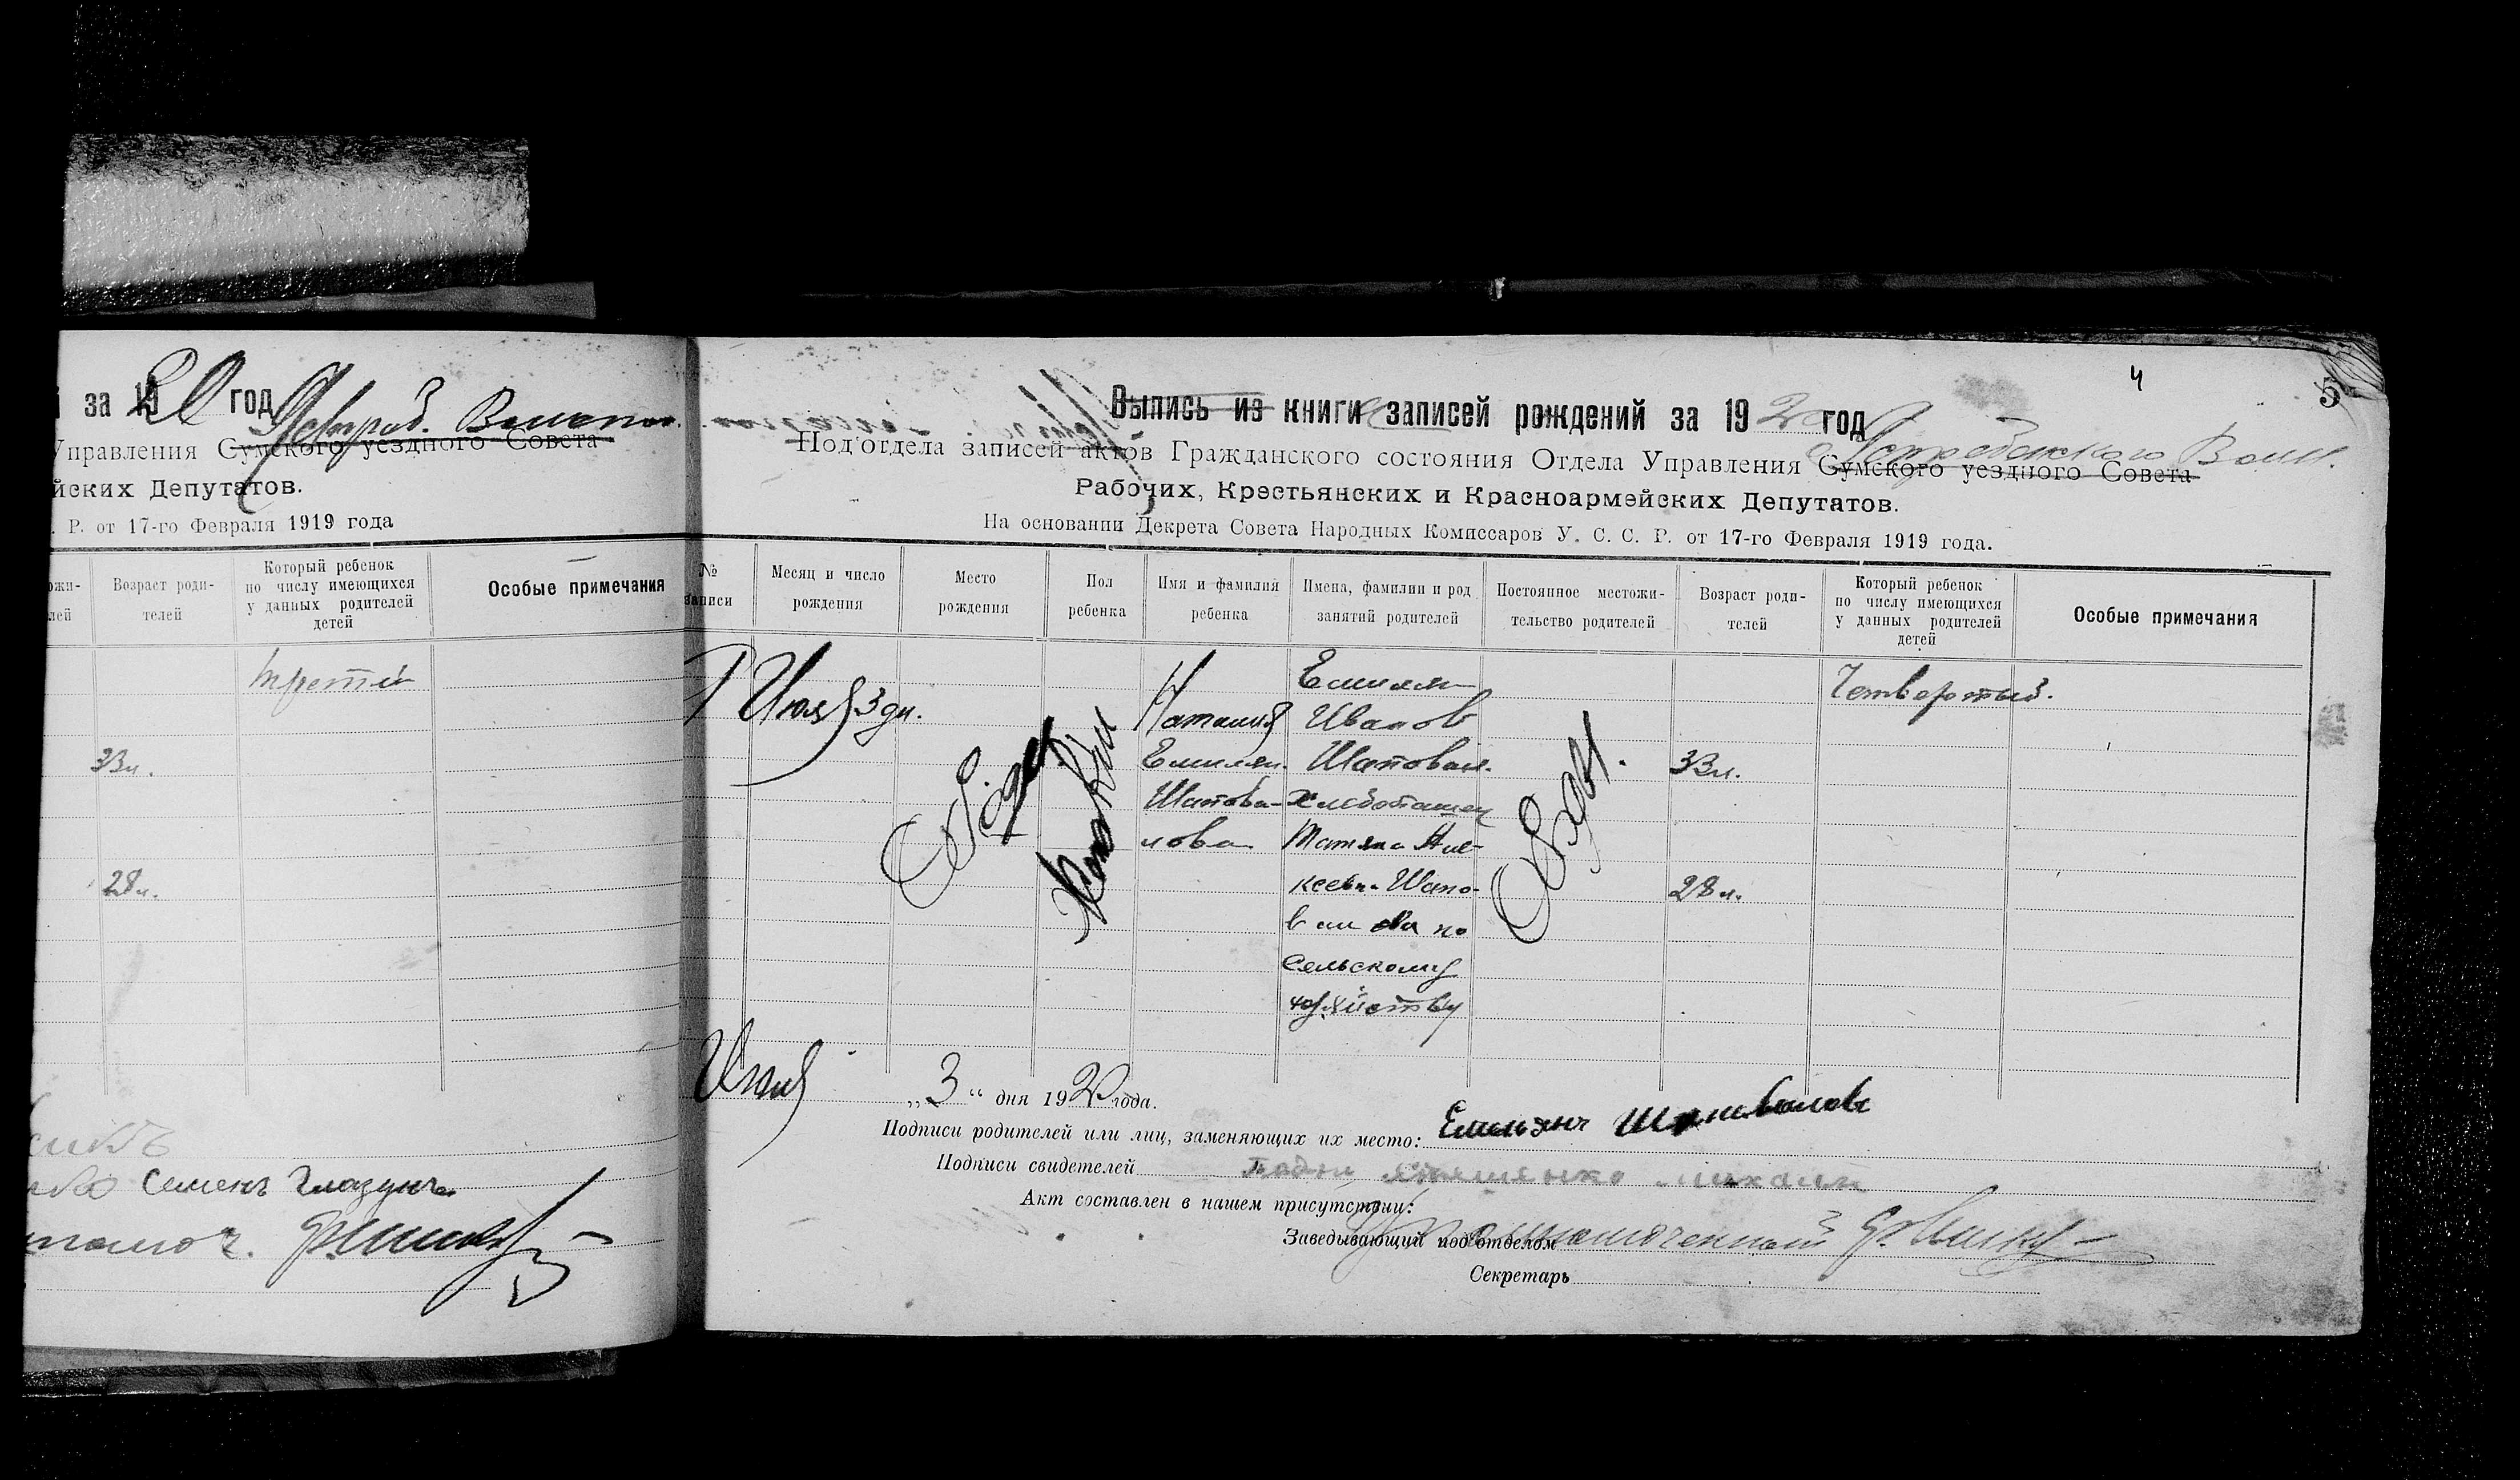 за 1920 год
Управления Сумского уездного Совета
йских Депутатов.
. Р. от 17-го Февраля 1919 года
Возраст роди-
телей
Который ребенок
по числу имеющихся
у данных родителей
детей
Особые примечания
третий
33л.
28л.
Семенъ Глазунъ
4
5
Выпись из книги записей рождений за 1920 год
Под'отдела записей актов Гражданского состояния Отдела Управления Сумского уездного Совета
Рабочих, Крестьянских и Красноармейских Депутатов.
На основании Декрета Совета Народных Комиссаров У. С. С. Р. от 17-го Февраля 1919 года.
№
записи
Месяц и число
рождения
Место
рождения
Пол
ребенка
Имя и фамилия
ребенка
Имена, фамилии и род
занятий родителей
Постоянное местожи-
тельство родителей
Возраст роди-
телей
Который ребенок
по числу имеющихся
у данных родителей
детей
Особые примечания
Июля 3 дн.
Наталия
Емилян.
Шапова-
лова
Емилян
Иванов
Шаповал.
Хлебопашец
Татяна Але-
ксеевн. Шапо-
валова по
сельскому
хозяйству
33л.
28л.
Четвертый.
Июля „3“ дня 1920 года.
Подписи родителей или лиц, заменяющих их место: Емельянъ Шаповаловъ
Подписи свидетелей
Акт составлен в нашем присутствии:
Заведывающий под'отделом
Секретарь